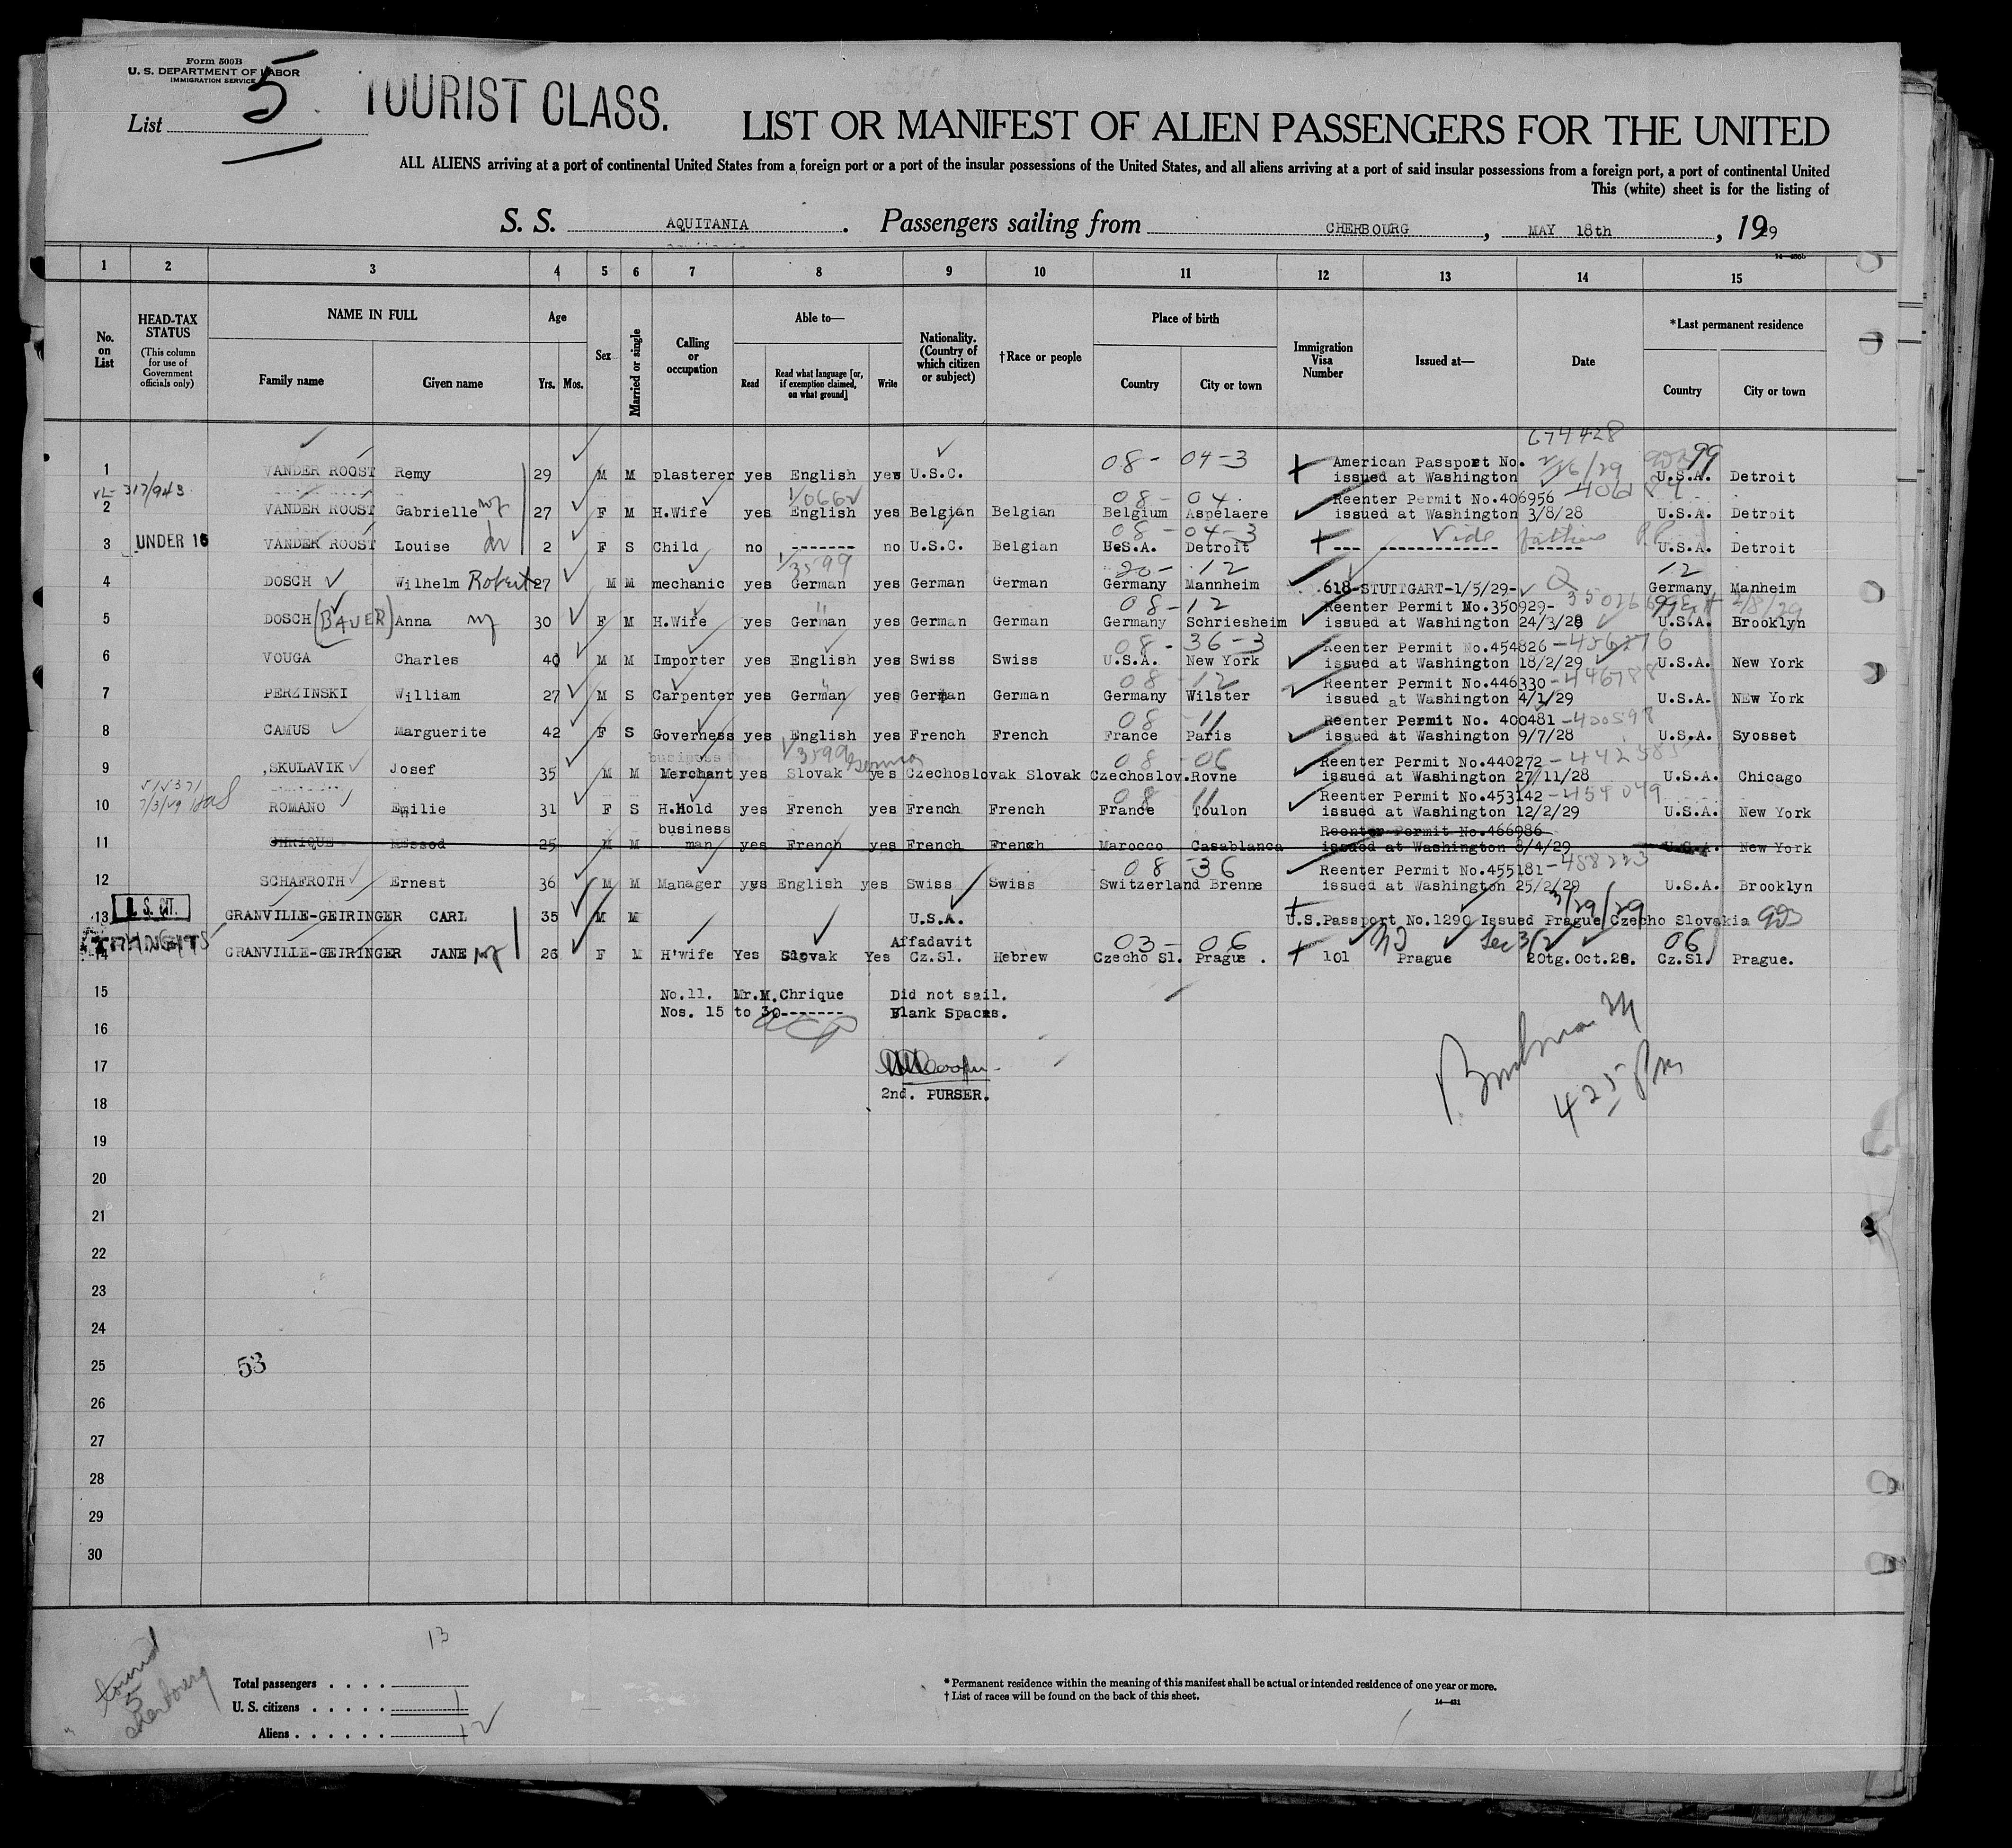 Form 500B
U. S. DEPARTMENT OF LABOR
IMMIGRATION SERVICE
List 5
TOURIST CLASS.
LIST OR MANIFEST OF ALIEN PASSENGERS FOR THE UNITED
ALL ALIENS arriving at a port of continental United States from a foreign port or a port of the insular possessions of the United States, and all aliens arriving at a port of said insular possessions from a foreign port, a port of continental United
This (white) sheet is for the listing of
S. S. AQUITANIA. Passengers sailing from CHERBOURG, MAY 18th, 1929
1 2 3 4 5 6 7 8 9 10 11 12 13 14 15
No. on List
HEAD-TAX STATUS
(This column for use of Government officials only)
NAME IN FULL
Family name Given name
Age
Yrs. Mos.
Sex
Married or single
Calling or occupation
Able to—
Read Read what language [or, if exemption claimed, on what ground] Write
Nationality. (Country of which citizen or subject)
†Race or people
Place of birth
Country City or town
Immigration Visa Number
Issued at—
Date
*Last permanent residence
Country City or town
674428
08- 04-3 American Passport No. 2/26/29 99
1 VANDER ROOST Remy 29 M M plasterer yes English yes U.S.C. issued at Washington U.S.A. Detroit
317/943 08- 04. Reenter Permit No.406956
2 VANDER ROOST Gabrielle wf 27 F M H.Wife yes English yes Belgian Belgian Belgium Aspelaere issued at Washington 3/8/28 U.S.A. Detroit
08-04-3
3 UNDER 16 VANDER ROOST Louise 2 F S Child no ------- no U.S.C. Belgian U.S.A. Detroit --- Vide fathers P.P. U.S.A. Detroit
1/3599 20- 12 12
4 DOSCH Wilhelm Robert 27 M M mechanic yes German yes German German Germany Mannheim 618-STUTTGART-1/5/29- Germany Manheim
08-12 Reenter Permit No.350929-
5 DOSCH (BAUER) Anna wf 30 F M H.Wife yes German yes German German Germany Schriesheim issued at Washington 24/3/28 U.S.A. Brooklyn
08-36-3 Reenter Permit No.454826-456276
6 VOUGA Charles 40 M M Importer yes English yes Swiss Swiss U.S.A. New York issued at Washington 18/2/29 U.S.A. New York
08-12 Reenter Permit No.446330-446788
7 PERZINSKI William 27 M S Carpenter yes German yes German German Germany Wilster issued at Washington 4/1/29 U.S.A. NEw York
08 11 Reenter Permit No. 400481-400598
8 CAMUS Marguerite 42 F S Governess yes English yes French French France Paris issued at Washington 9/7/28 U.S.A. Syosset
business 1/3599 German 08 06 Reenter Permit No.440272-442585
9 SKULAVIK Josef 35 M M Merchant yes Slovak yes Czechoslovak Slovak Czechoslov. Rovne issued at Washington 27/11/28 U.S.A. Chicago
08 11 Reenter Permit No.453142-454049
10 7/3/29 ROMANO Emilie 31 F S H.Hold yes French yes French French France Toulon issued at Washington 12/2/29 U.S.A. New York
business Reenter Permit No.466986
11 CHRIQUE Messod 25 M M man yes French yes French French Marocco Casablanca issued at Washington 8/4/29 U.S.A. New York
08-36 Reenter Permit No.455181-488223
12 SCHAFROTH Ernest 36 M M Manager yes English yes Swiss Swiss Switzerland Brenne issued at Washington 25/2/29 U.S.A. Brooklyn
U. S. CIT. 3/29/29
13 GRANVILLE-GEIRINGER CARL 35 M M U.S.A. U.S.Passport No.1290 Issued Prague Czecho Slovakia
Affadavit 03-06 Sec 3/2 06
14 GRANVILLE-GEIRINGER JANE wf 26 F M H'wife Yes Slovak Yes Cz.Sl. Hebrew Czecho Sl. Prague. 101 Prague 20tg.Oct.28. Cz.Sl. Prague.
15 No.11. Mr.M.Chrique Did not sail.
Nos. 15 to 30------- Blank Spaces.
16
17
2nd. PURSER.
18
19
20
21
22
23
24
25
53
26
27
28
29
30
425 Pm
13
Total passengers
U. S. citizens 1
Aliens 12
tourist
5
Cherbourg
* Permanent residence within the meaning of this manifest shall be actual or intended residence of one year or more.
† List of races will be found on the back of this sheet.
14—431